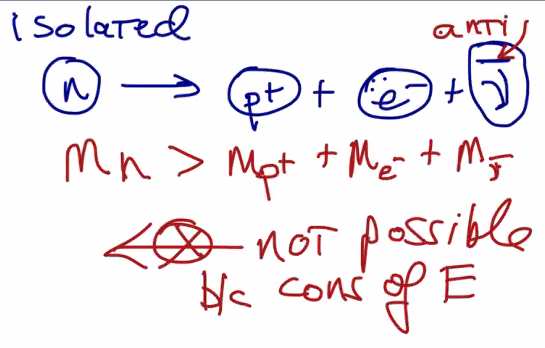 isolated
anti
n → p+ + e- + ν̅
Mn > Mp+ + Me- + Mν̅
not possible
b/c cons of E